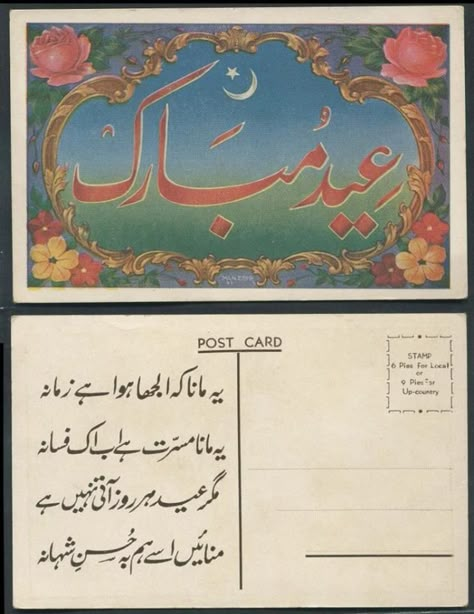 عید مبارک
POST CARD
STAMP
6 Pies for Local
or
9 Pies for
Up-country
یہ مانا کہ الجھا ہوا ہے زمانہ
یہ مانا مسرّت ہے اب اک فسانہ
مگر عید ہر روز آتی نہیں ہے
منائیں اسے ہم بہ حُسنِ شہانہ